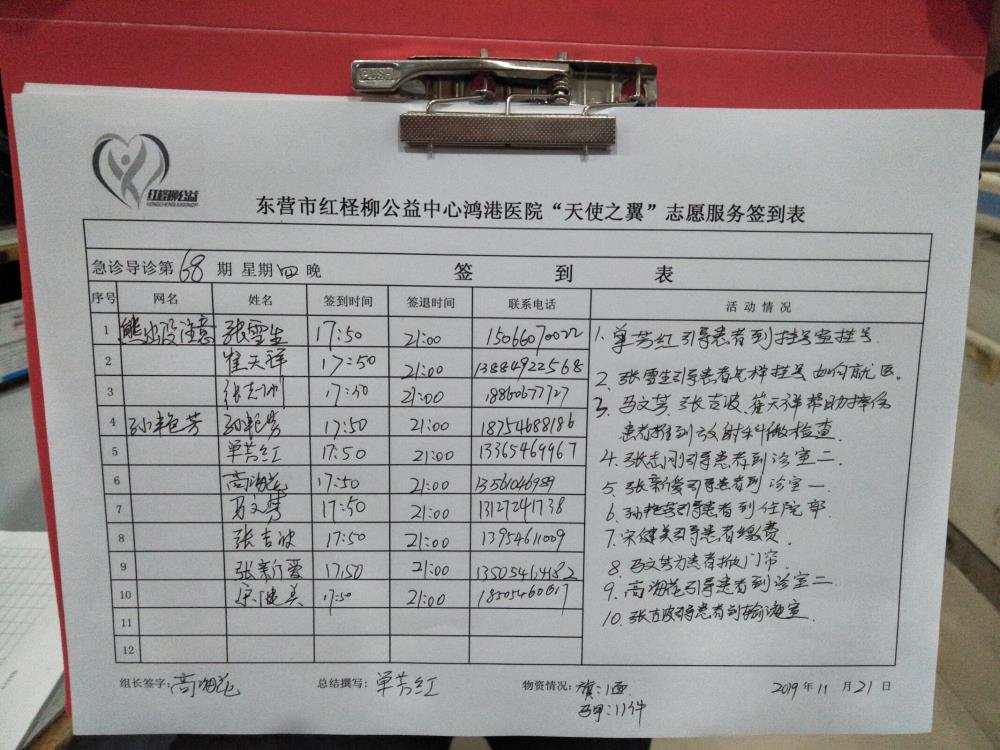 红柽柳公益
东营市红柽柳公益中心鸿港医院“天使之翼”志愿服务签到表
急诊导诊第68期 星期四晚 签到表
序号 网名 姓名 签到时间 签退时间 联系电话 活动情况
1 熊出没注意 张雪生 17:50 21:00 15066070022
2 崔天祥 17:50 21:00 13884922568
3 张志刚 17:50 21:00 18860677727
4 孙艳芳 孙艳芳 17:50 21:00 18754688186
5 单芳红 17:50 21:00 13365469967
6 高海花 17:50 21:00 13561046989
7 马文芳 17:50 21:00 13127241738
8 张吉波 17:50 21:00 13954611009
9 张新爱 17:50 21:00 13505464182
10 宋健美 17:50 21:00 18505460617
11
12
1、单芳红引导患者到挂号室挂号.
2、张雪生引导患者怎样挂号如何就医。
3、马文芳、张吉波、崔天祥帮助摔伤
患者推到放射科做检查.
4、张志刚引导患者到诊室二.
5、张新爱引导患者到诊室一.
6、孙艳芳引导患者到住院部.
7、宋健美引导患者缴费.
8、马文芳为患者掀门帘.
9、高海花引导患者到诊室二.
10、张吉波引导患者到输液室.
组长签字:高海花 总结撰写:单芳红 物资情况:旗:1面 2019年11月21日
马甲:11件